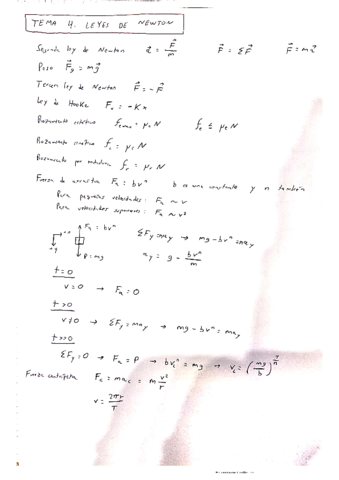 TEMA 4. LEYES DE NEWTON
Segunda ley de Newton a⃗ = F⃗/m F⃗ = ΣF⃗ F⃗ = ma⃗
Peso F⃗g = mg⃗
Tercera ley de Newton F⃗ = -F⃗
Ley de Hooke Fx = -Kx
Rozamiento estático femax = μeN fe ≤ μeN
Rozamiento cinético fc = μcN
Rozamiento por rodadura fr = μrN
Fuerza de arrastre Fa = bvⁿ b es una constante y n también
Para pequeñas velocidades: Fa ~ v
Para velocidades superiores: Fa ~ v²
Fa = bvⁿ ΣFy = may → mg - bvⁿ = may
+x
+y
P = mg ay = g - bvⁿ/m
t = 0
v = 0 → Fa = 0
t > 0
v ≠ 0 → ΣFy = may → mg - bvⁿ = may
t >> 0
ΣFy = 0 → Fa = P → bvₗⁿ = mg → vₗ = (mg/b)^(1/n)
Fuerza centrípeta Fc = mac = m v²/r
v = 2πr/T